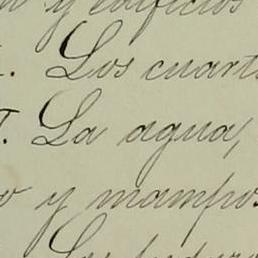 y edificios
. Los cuart
. La agua,
o y mampos
Los